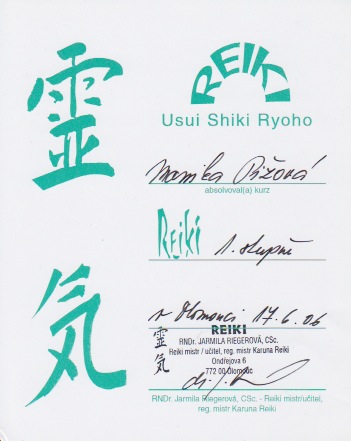 靈
気
REIKI
Usui Shiki Ryoho
Monika Pížová
absolvoval(a) kurz
Reiki
1. stupně
v Olomouci 17.6.06
REIKI
靈
気
RNDr. JARMILA RIEGEROVÁ, CSc.
Reiki mistr / učitel, reg. mistr Karuna Reiki
Ondřejova 6
772 00 Olomouc
RNDr. Jarmila Riegerová, CSc. - Reiki mistr/učitel,
reg. mistr Karuna Reiki